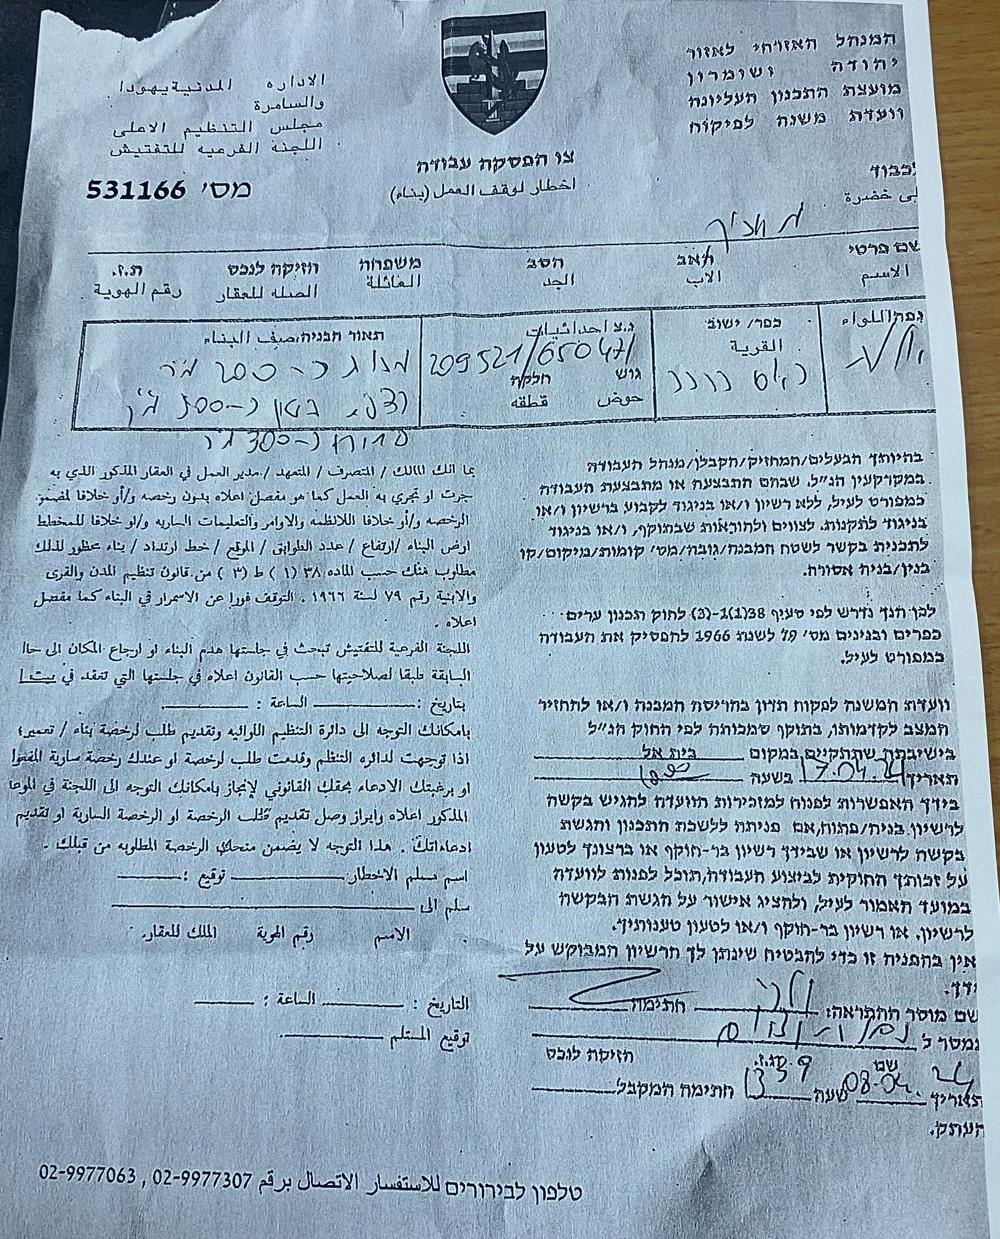 המנהל האזרחי לאזור
יהודה ושומרון
מועצת התכנון העליונה
וועדת משנה לפיקוח
الاداره المدنية يهودا
والسامرة
مجلس التنظيم الاعلى
اللجنة الفرعيه للتفتيش
צו הפסקת עבודה
اخطار لوقف العمل (بناء)
מס' 531166
לכבוד
خضرة
מחזיק
שם פרטי האב הסב משפחה חזיקה לנכס ת.ז.
الاسم الاب الجد العائلة الصله للعقار رقم الهوية
נפה/اللواء כפר/ישוב נ.צ احداثيات תאור הבניה/صيف البناء
القرية 209521/650471
גוש חלקה
حوض قطقه
בהיותך הבעלים/המחזיק/הקבלן/מנהל העבודה
במקרקעין הנ"ל, שבהם התבצעה או מתבצעת העבודה
כמפורט לעיל, ללא רשיון ו/או בניגוד לקבוע ברשיון ו/או
בניגוד לתקנות, לצווים ולהוראות שבתוקף, ו/או בניגוד
לתכנית בקשר לשטח המבנה/גובה/מס' קומות/מיקום/קו
בנין/בניה אסורה.
לכן הנך נדרש לפי סעיף 38(1)-(3) לחוק תכנון ערים
כפרים ובנינים מס' 79 לשנת 1966 להפסיק את העבודה
כמפורט לעיל.
וועדת המשנה לפקוח תדון בהריסת המבנה ו/או להחזיר
המצב לקדמותו, בתוקף סמכותה לפי החוק הנ"ל
בישיבתה שתתקיים במקום בית אל
תאריך 17.04.24 בשעה
בידך האפשרות לפנות למזכירות הוועדה להגיש בקשה
לרשיון בניה/פתוח, אם פניתה ללשכת התכנון והגשת
בקשה לרשיון או שבידך רשיון בר-תוקף או ברצונך לטעון
על זכותך החוקית לביצוע העבודה, תוכל לפנות לוועדה
במועד האמור לעיל, ולהציג אישור על הגשת הבקשה
לרשיון. או רשיון בר-תוקף ו/או לטעון טענותיך.
אין בהפניה זו כדי להבטיח שינתן לך הרשיון המבוקש על
ידך.
שם מוסר ההתראה: חתימה
נמסר ל
חזיקה לנכס ת.ז. שם
תאריך 08.04.24 שעה 13 חתימה המקבל
העתק.
بما انك المالك / المتصرف / المتعهد / مدير العمل في العقار المذكور الذي به
جرت او تجري به العمل كما هو مفصل اعلاه بدون رخصه و/أو خلافا لمضمون
الرخصه و/أو خلافا للانظمه والاوامر والتعليمات الساريه و/او خلافا للمخطط
ارض البناء /ارتفاع / عدد الطوابق / الموقع / خط ارتداد / بناء محظور لذلك
مطلوب منك حسب الماده ٣٨ (١) ط (٣) من قانون تنظيم المدن والقرى
والابنية رقم ٧٩ لسنة ١٩٦٦ . التوقف فورا عن الاسمرار في البناء كما مفصل
اعلاه .
اللجنة الفرعية للتفتيش تبحث في جلستها هدم البناء او ارجاع المكان الى حا
السابقة طبقا لصلاحيتها حسب القانون اعلاه في جلستها التي تنعقد في
بتاريخ : الساعة :
بامكانك التوجه الى دائرة التنظيم اللوائيه وتقديم طلب لرخصة بناء / تعمير؛
اذا توجهت لدائره التنظم وقدمت طلب لرخصة او عندك رخصة سارية المفعول
او برغبتك الادعاء بحقك القانوني لإنجاز بامكانك التوجه الى اللجنة في الموعا
المذكور اعلاه وابراز وصل تقديم طلب الرخصة او الرخصة السارية او تقديم
ادعاءاتك . هذا التوجه لا يضمن منحك الرخصة المطلوبه من قبلك .
اسم مسلم الاخطار توقيع :
سلم الى
الاسم رقم الهوية الملك للعقار.
التاريخ : الساعة :
توقيع المستلم
טלפון לבירורים للاستفسار الاتصال برقم 02-9977307 , 02-9977063